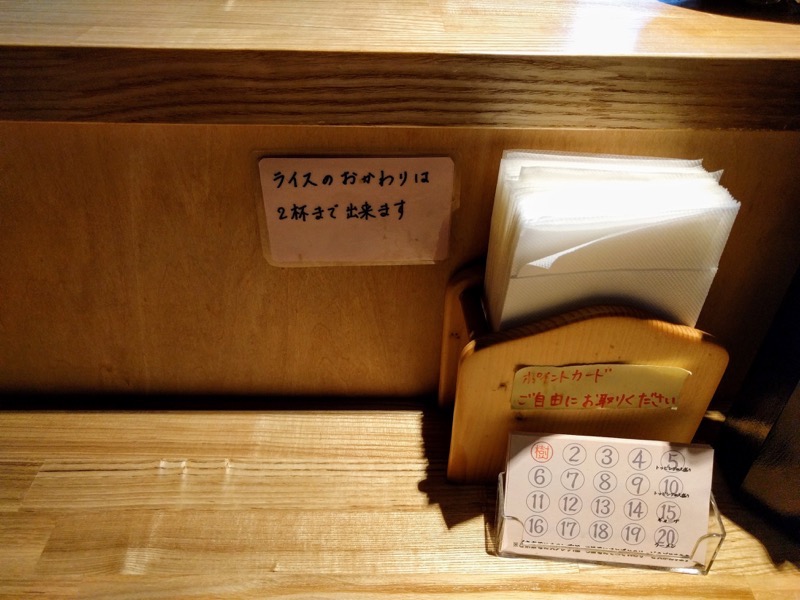 ライスのおかわりは
2杯まで出来ます
ポイントカード
ご自由にお取りください
樹 2 3 4 5
6 7 8 9 10
11 12 13 14 15
16 17 18 19 20